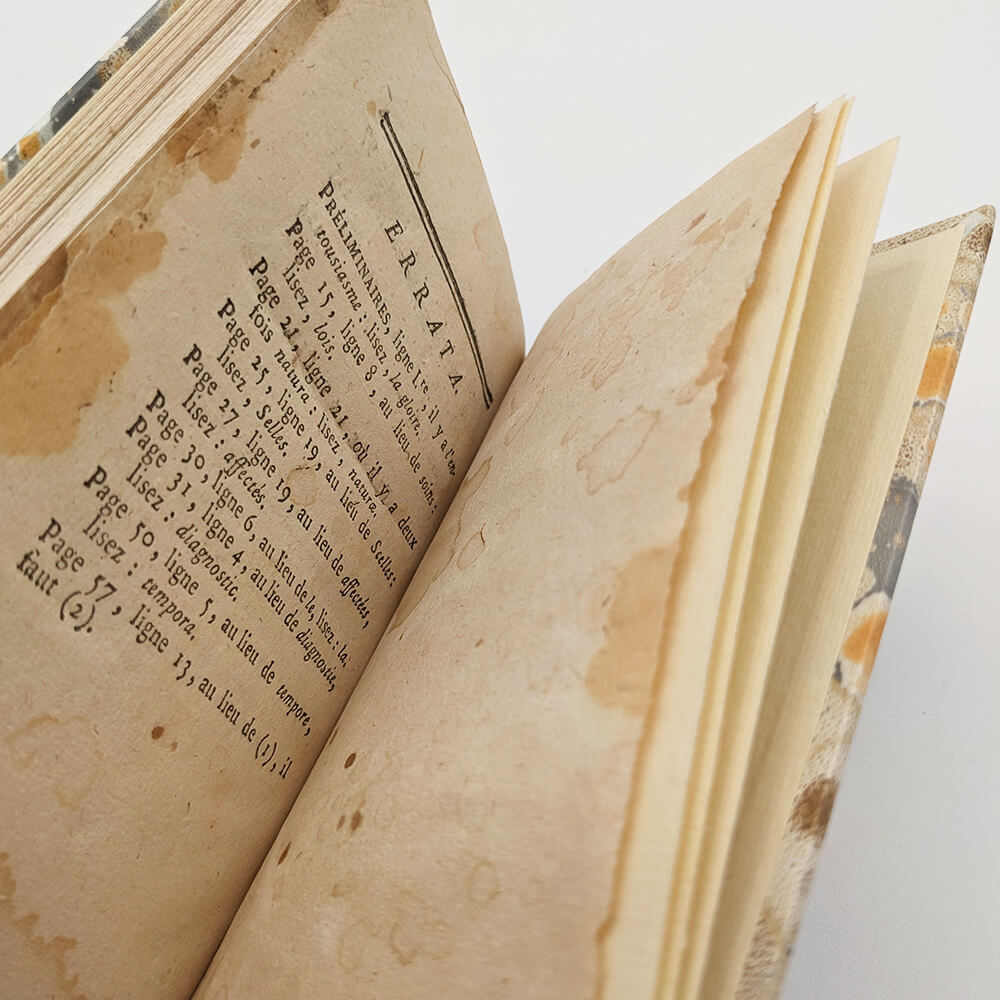 ERRATA.
PRÉLIMINAIRES, ligne 1re, il y a l'en-
tousiasme : lisez, la gloire.
Page 15, ligne 8, au lieu de soins :
lisez, lois.
Page 21, ligne 21, où il y a deux
fois natura : lisez, naturæ.
Page 25, ligne 19, au lieu de Scelles :
lisez, Selles.
Page 27, ligne 19, au lieu de affectées,
lisez : affectés.
Page 30, ligne 6, au lieu de le, lisez : la.
Page 31, ligne 4, au lieu de diagnostie,
lisez : diagnostic.
Page 50, ligne 5, au lieu de tempore,
lisez : tempora.
Page 57, ligne 13, au lieu de (1), il
faut (2).